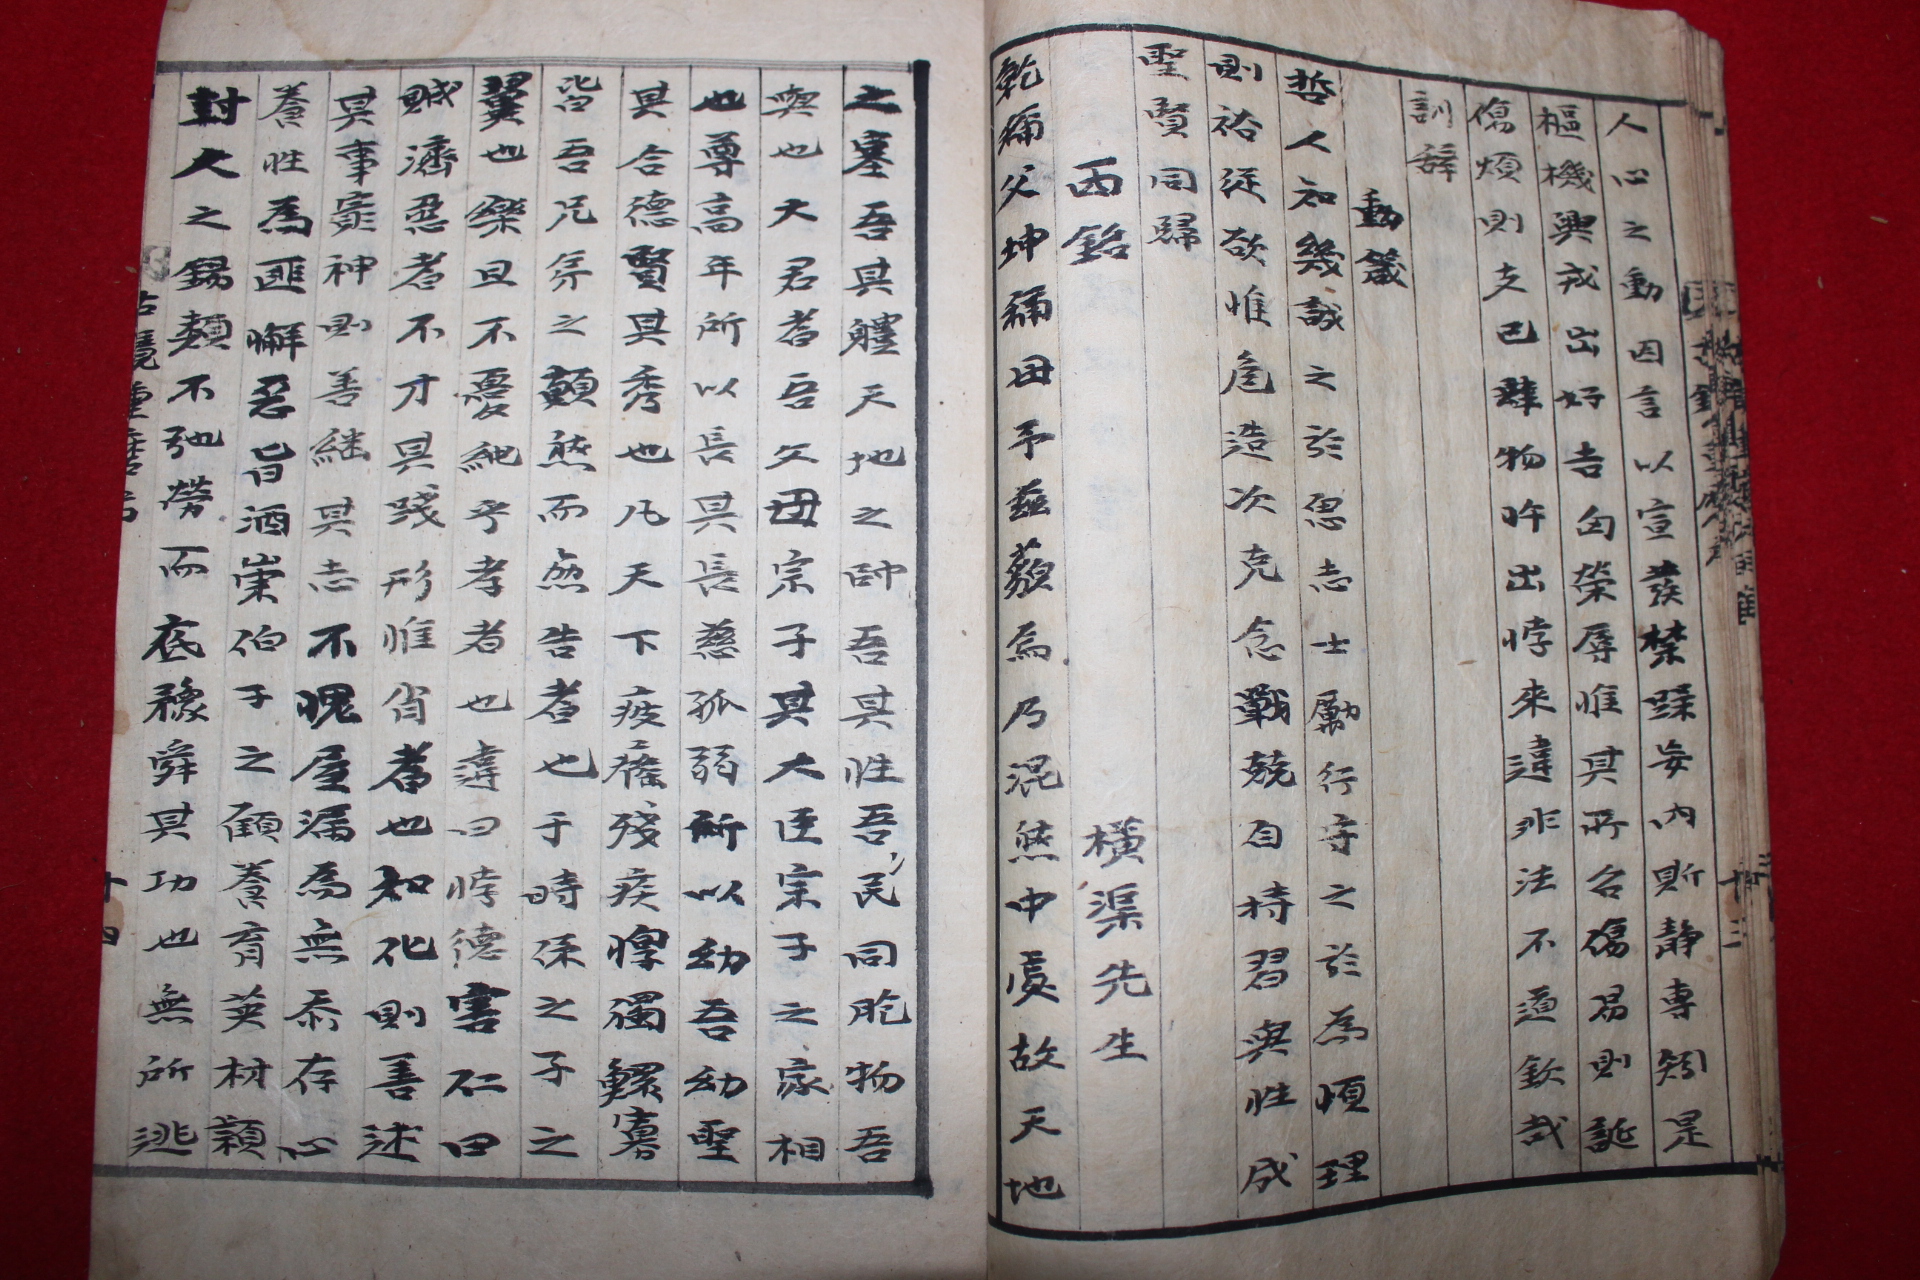 人心之動因言以宣發禁躁妄內斯靜專矧是
樞機興戎出好吉凶榮辱惟其所召傷易則誕
傷煩則支已肆物忤出悖來違非法不道欽哉
訓辭
動箴
哲人知幾誠之於思志士勵行守之於為順理
則裕從欲惟危造次克念戰兢自持習與性成
聖賢同歸
西銘 橫渠先生
乾稱父坤稱母予茲藐焉乃混然中處故天地
之塞吾其軆天地之帥吾其性吾民同胞物吾
與也大君者吾父母宗子其大臣宗子之家相
也尊高年所以長其長慈孤弱所以幼吾幼聖
其合德賢其秀也凡天下疲癃殘疾惸獨鰥寡
皆吾兄弟之顛然而無告者也于時保之子之
翼也樂且不憂純乎孝者也違曰悖德害仁曰
賊濟惡者不才其踐形惟肖者也知化則善述
其事窮神則善継其志不愧屋漏為無忝存心
養性為匪懈惡旨酒崇伯子之顧養育英材穎
封人之錫類不弛勞而底豫舜其功也無所逃
十四